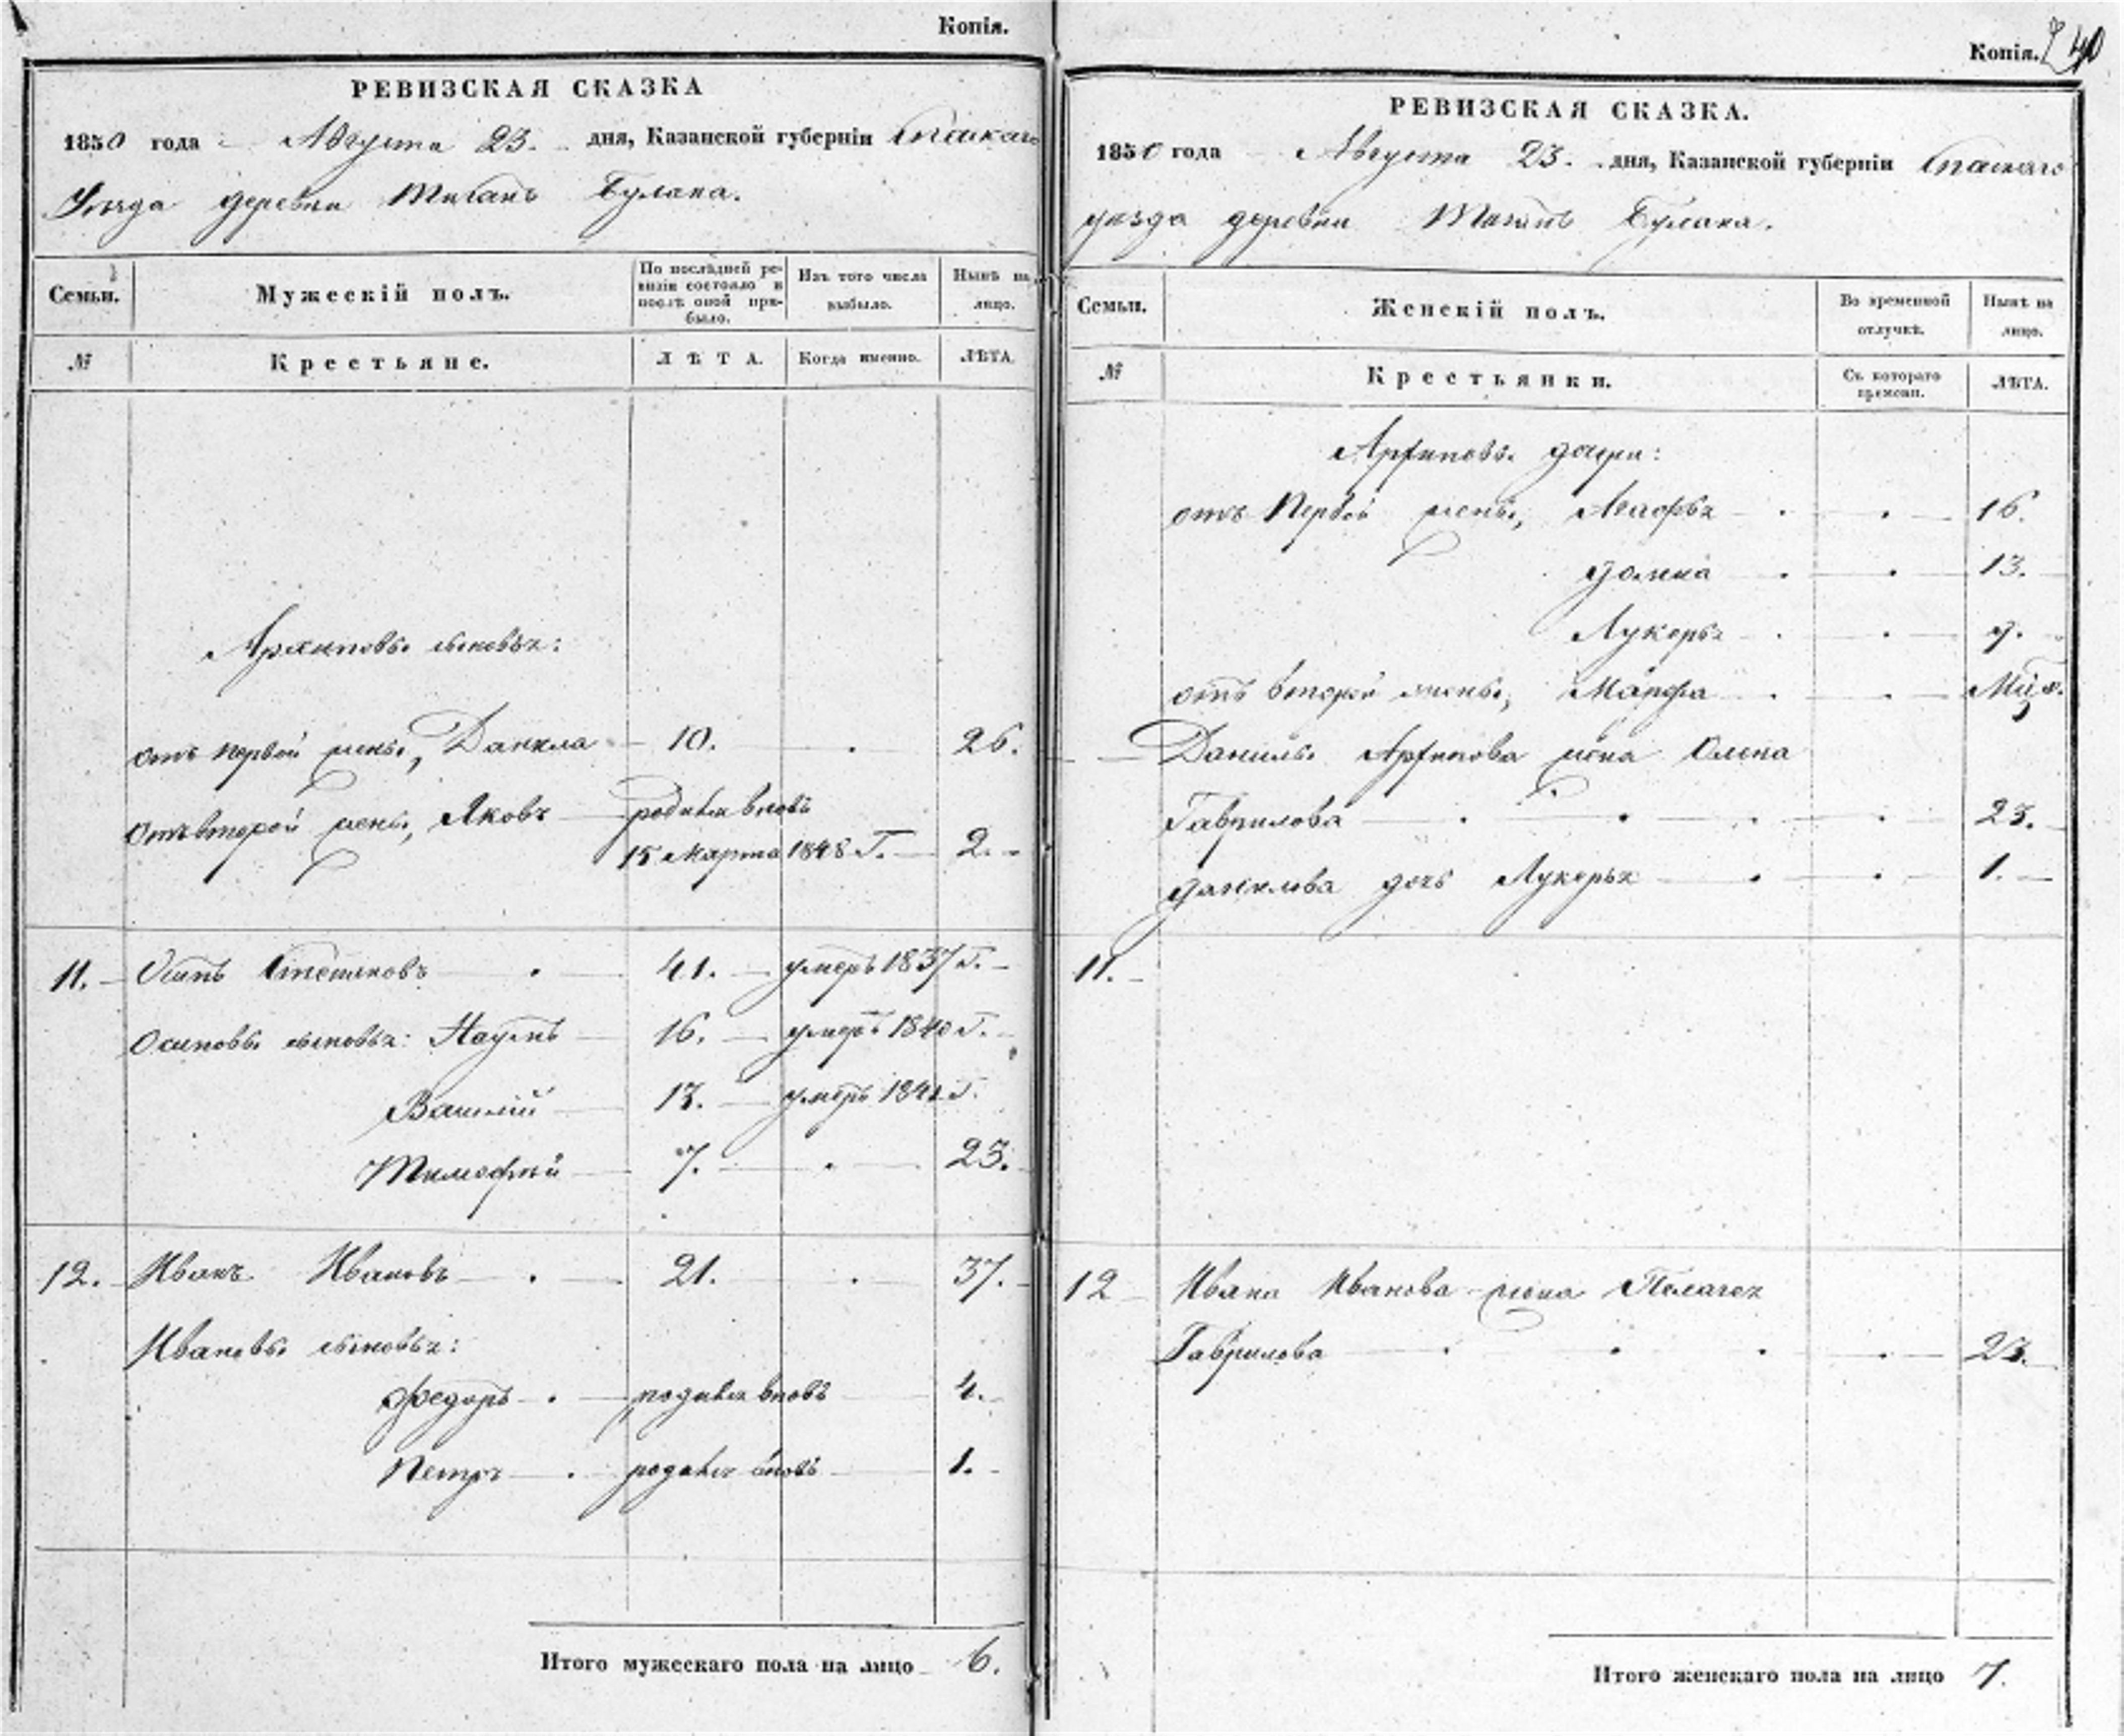 Копія.
РЕВИЗСКАЯ СКАЗКА
1850 года Августа 23. дня, Казанской губерніи Спаскаго
Уѣзда деревни Тиганъ Булака.
Семьи.
Мужескій полъ.
По послѣдней ре-
визіи состояло и
послѣ оной при-
было.
Изъ того числа
выбыло.
Нынѣ на
лицо.
№
Крестьяне.
ЛѢТА.
Когда именно.
ЛѢТА.
Архиповы сыновья:
отъ первой жены, Данила 10. 26.
отъ второй жены, Яковъ родился вновь
15 марта 1848 г. 2.
11. Осипъ Степановъ 41. умеръ 1837 г.
Осиповы сыновья: Наумъ 16. умеръ 1840 г.
Василій 13. умеръ г.
Тимофей 7. 23.
12. Иванъ Ивановъ 21. 37.
Ивановы сыновья:
Федоръ родился вновь 4.
Петръ родился вновь 1.
Итого мужескаго пола на лицо 6.
Копія. 40
РЕВИЗСКАЯ СКАЗКА.
1850 года Августа 23. дня, Казанской губерніи Спаскаго
уѣзда деревни Тиганъ Булака.
Семьи.
Женскій полъ.
Во временной
отлучкѣ.
Нынѣ на
лицо.
№
Крестьянки.
Съ котораго
времени.
ЛѢТА.
Архиповы дочери:
отъ первой жены, Агафья 16.
Домна 13.
Лукерья 9.
отъ второй жены, Марфа
Данилы Архипова жена Олена
Гаврилова 23.
Данилова дочь Лукерья 1.
11.
12 Ивана Иванова жена Пелагея
Гаврилова 23.
Итого женскаго пола на лицо 7.